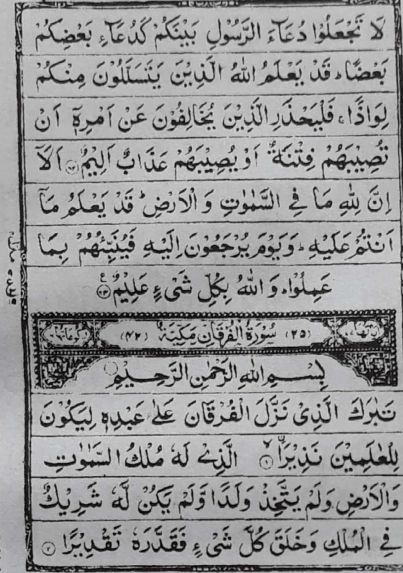 لَا تَجْعَلُوْا دُعَآءَ الرَّسُوْلِ بَيْنَكُمْ كَدُعَآءِ بَعْضِكُمْ
بَعْضًا ؕ قَدْ يَعْلَمُ اللّٰهُ الَّذِيْنَ يَتَسَلَّلُوْنَ مِنْكُمْ
لِوَاذًا ۚ فَلْيَحْذَرِ الَّذِيْنَ يُخَالِفُوْنَ عَنْ اَمْرِهٖٓ اَنْ
تُصِيْبَهُمْ فِتْنَةٌ اَوْ يُصِيْبَهُمْ عَذَابٌ اَلِيْمٌ ﴿۶۳﴾ اَلَآ
اِنَّ لِلّٰهِ مَا فِي السَّمٰوٰتِ وَ الْاَرْضِ ؕ قَدْ يَعْلَمُ مَآ
اَنْتُمْ عَلَيْهِ ؕ وَ يَوْمَ يُرْجَعُوْنَ اِلَيْهِ فَيُنَبِّئُهُمْ بِمَا
عَمِلُوْا ؕ وَ اللّٰهُ بِكُلِّ شَيْءٍ عَلِيْمٌ ﴿۶۴﴾
(۲۵) سُوْرَةُ الْفُرْقَانِ مَكِّيَّةٌ (۴۲)
بِسْمِ اللّٰهِ الرَّحْمٰنِ الرَّحِيْمِ
تَبٰرَكَ الَّذِيْ نَزَّلَ الْفُرْقَانَ عَلٰى عَبْدِهٖ لِيَكُوْنَ
لِلْعٰلَمِيْنَ نَذِيْرًا ﴿۱﴾ ۙ الَّذِيْ لَهٗ مُلْكُ السَّمٰوٰتِ
وَ الْاَرْضِ وَ لَمْ يَتَّخِذْ وَلَدًا وَّ لَمْ يَكُنْ لَّهٗ شَرِيْكٌ
فِي الْمُلْكِ وَ خَلَقَ كُلَّ شَيْءٍ فَقَدَّرَهٗ تَقْدِيْرًا ﴿۲﴾